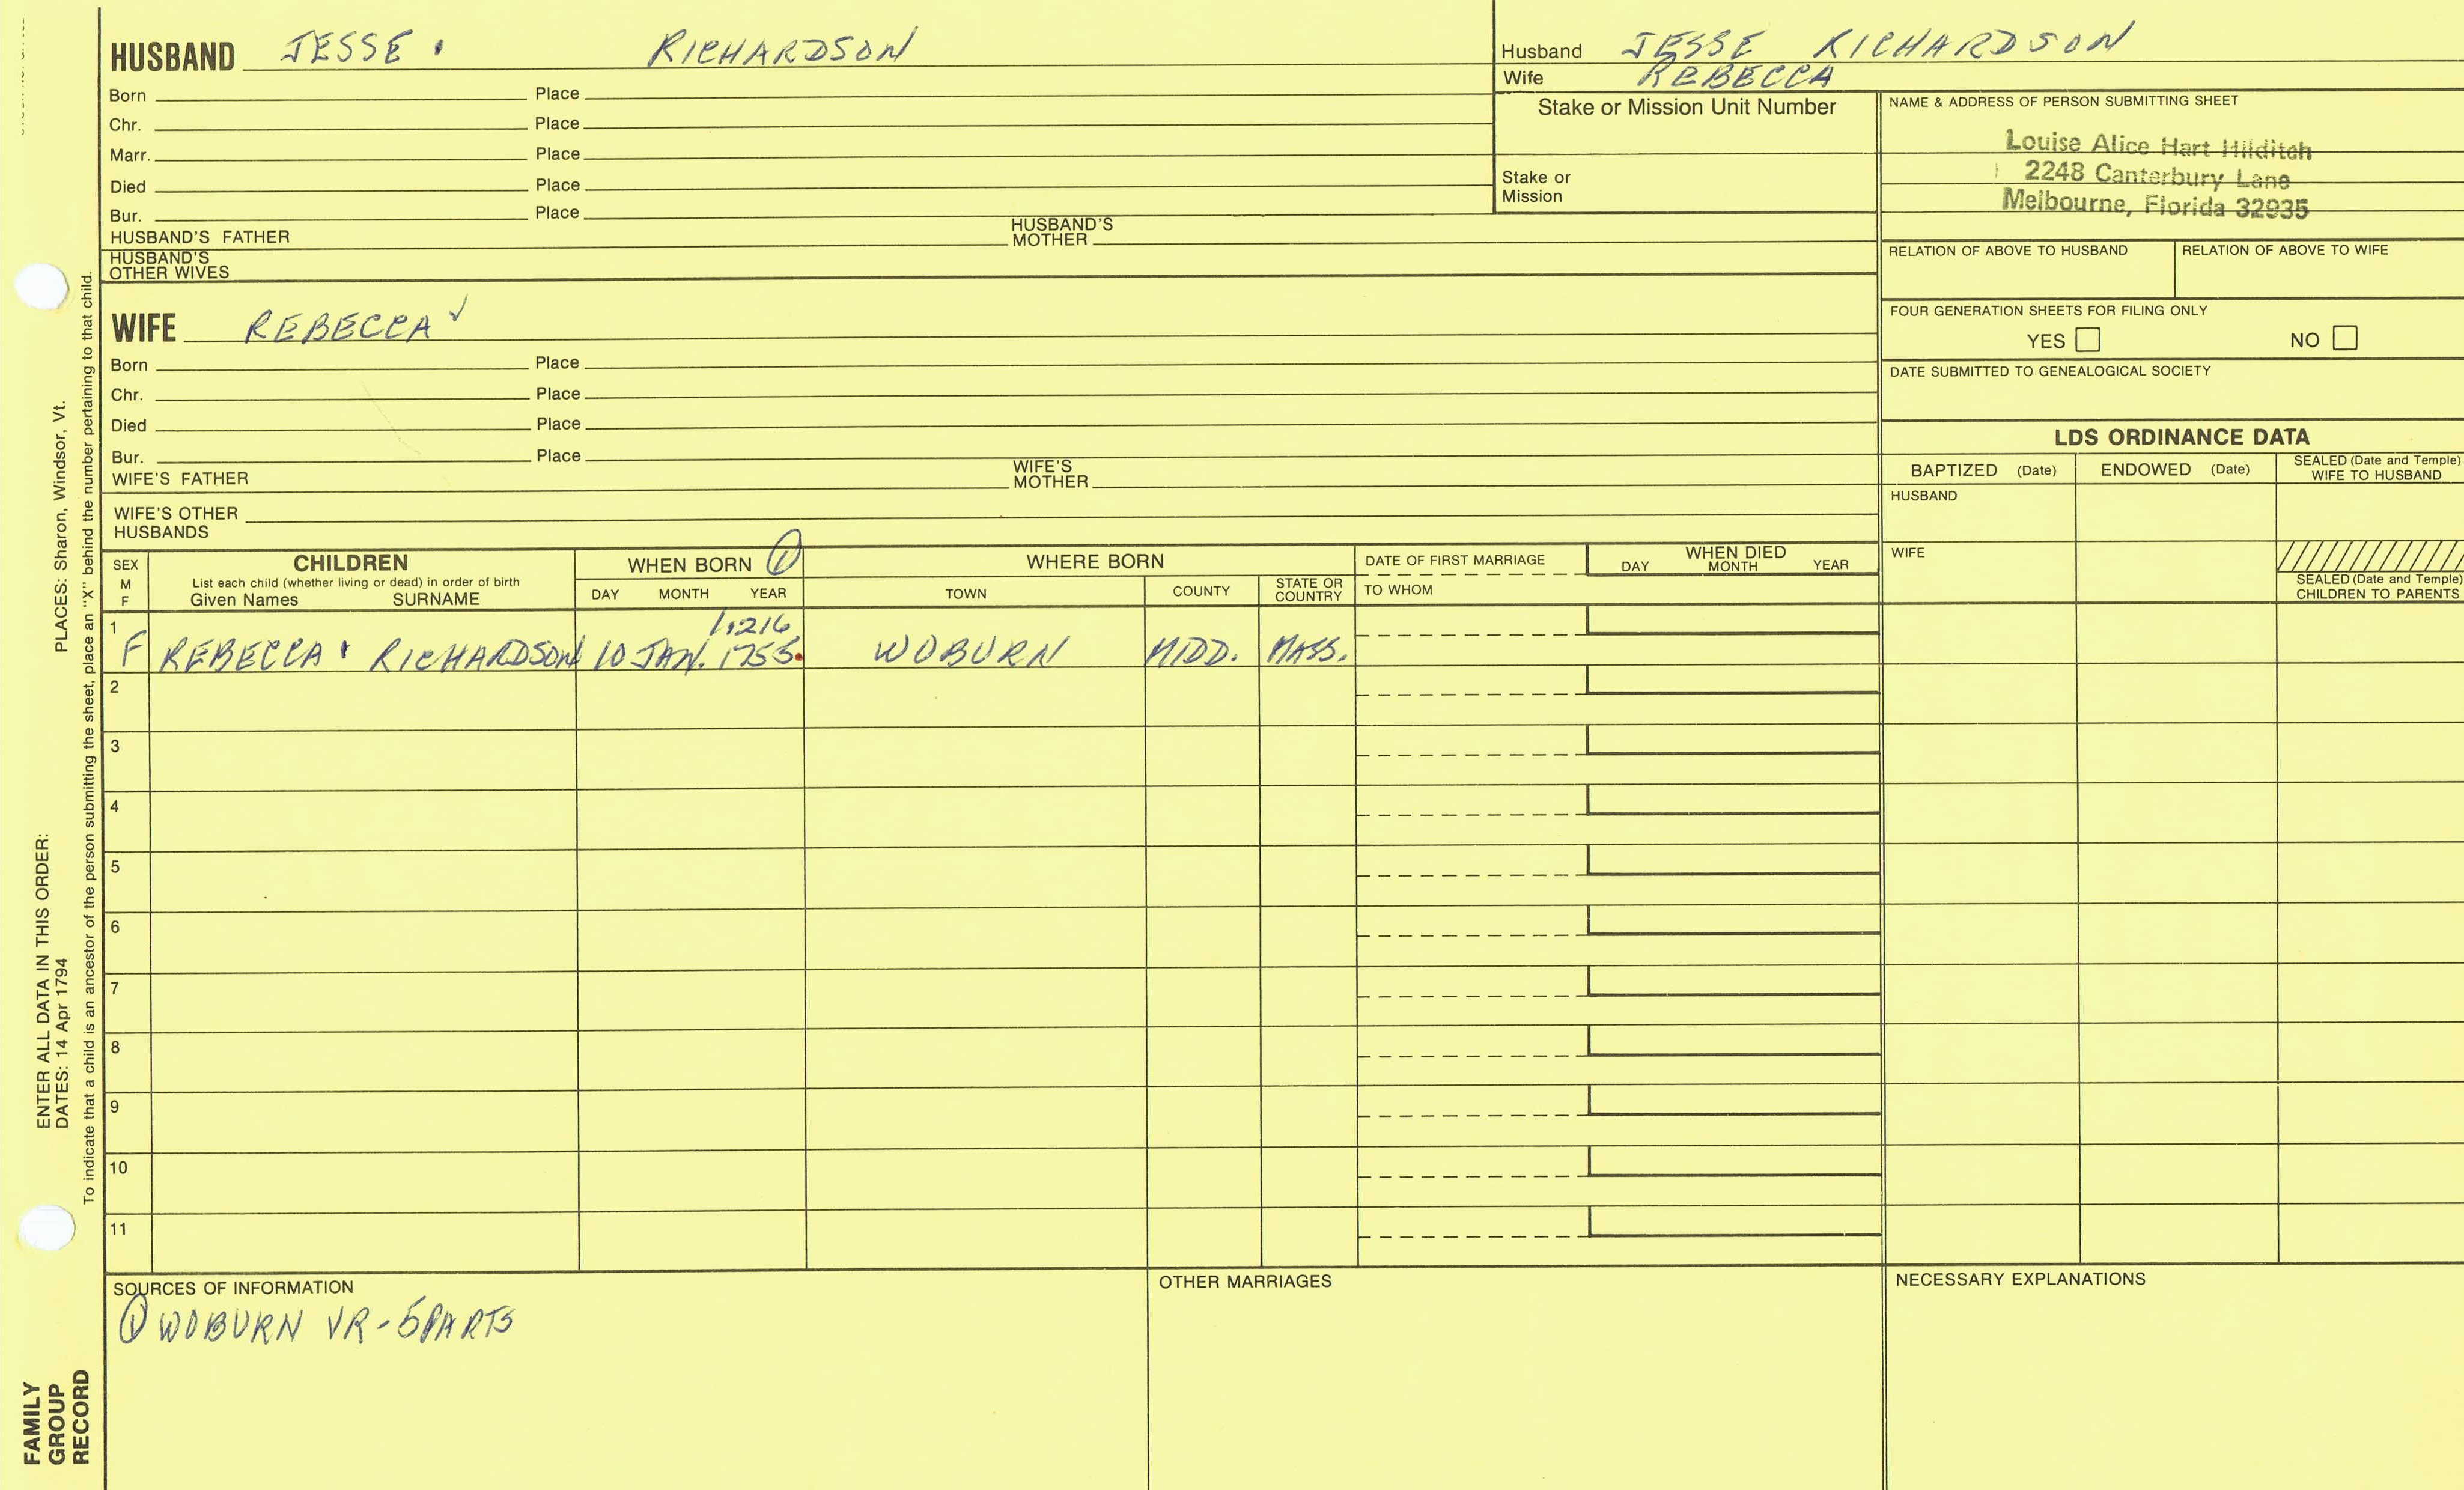 HUSBAND JESSE RICHARDSON
Born Place
Chr. Place
Marr. Place
Died Place
Bur. Place
HUSBAND'S FATHER HUSBAND'S MOTHER
HUSBAND'S OTHER WIVES
WIFE REBECCA ✓
Born Place
Chr. Place
Died Place
Bur. Place
WIFE'S FATHER WIFE'S MOTHER
WIFE'S OTHER HUSBANDS
Husband JESSE RICHARDSON
Wife REBECCA
Stake or Mission Unit Number
Stake or
Mission
NAME & ADDRESS OF PERSON SUBMITTING SHEET
Louise Alice Hart Hilditch
2248 Canterbury Lane
Melbourne, Florida 32935
RELATION OF ABOVE TO HUSBAND RELATION OF ABOVE TO WIFE
FOUR GENERATION SHEETS FOR FILING ONLY
YES NO
DATE SUBMITTED TO GENEALOGICAL SOCIETY
LDS ORDINANCE DATA
BAPTIZED (Date) ENDOWED (Date) SEALED (Date and Temple) WIFE TO HUSBAND
HUSBAND
WIFE
SEALED (Date and Temple) CHILDREN TO PARENTS
SEX M F
CHILDREN
List each child (whether living or dead) in order of birth
Given Names SURNAME
WHEN BORN ①
DAY MONTH YEAR
WHERE BORN
TOWN COUNTY STATE OR COUNTRY
DATE OF FIRST MARRIAGE
TO WHOM
WHEN DIED
DAY MONTH YEAR
1 F REBECCA RICHARDSON 10 JAN. 1755 WOBURN MIDD. MASS.
1:216
2
3
4
5
6
7
8
9
10
11
SOURCES OF INFORMATION
① WOBURN VR-5PARTS
OTHER MARRIAGES
NECESSARY EXPLANATIONS
ENTER ALL DATA IN THIS ORDER:
DATES: 14 Apr 1794 PLACES: Sharon, Windsor, Vt.
To indicate that a child is an ancestor of the person submitting the sheet, place an "X" behind the number pertaining to that child.
FAMILY
GROUP
RECORD